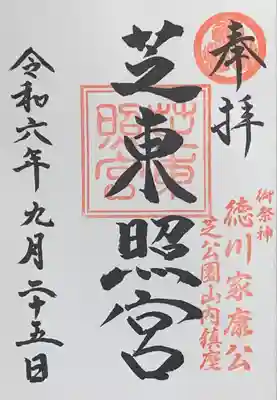 奉拝
御祭神
徳川家康公
芝公園山内鎮座
芝東照宮
芝東
照宮
令和六年九月二十五日